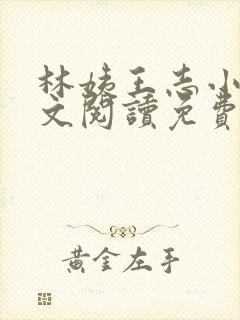 林姨王志小
文閱讀免費
黃金左手